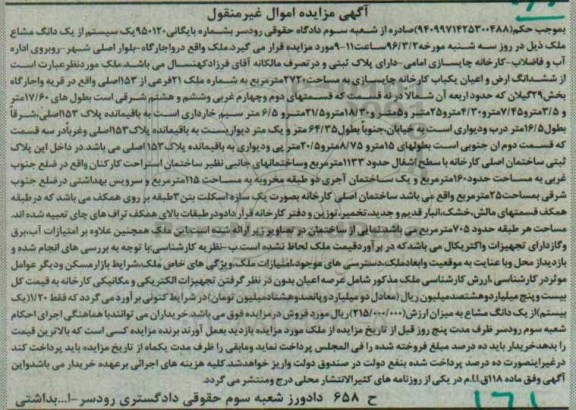 آگهی مزایده اموال غیرمنقول
بموجب حکم(۹۴۰۹۹۷۱۴۲۵۳۰۰۴۸۸)صادره از شعبه سوم دادگاه حقوقی رودسر بشماره بایگانی۹۵۰۱۲۰یک سیستم از یک دانگ مشاع
ملک ذیل در روز سه شنبه مورخه۹۶/۳/۲ساعت۱۱-۹مورد مزایده قرار می گیرد.ملک واقع درواجارگاه-بلوار اصلی شهر-روبروی اداره
آب و فاضلاب-کارخانه چایسازی امامی-دارای پلاک ثبتی و در تصرف مالکانه آقای فرزادکهنسال می باشد.ملک موردنظرعبارت است
از ششدانگ ارض و اعیان یکباب کارخانه چایسازی به مساحت۲۷۲۰مترمربع به شماره ملک ۲۱فرعی از ۱۵۳اصلی واقع در قریه واجارگاه
بخش۲۹گیلان که حدود اربعه آن شمالا"در نه قسمت که قسمتهای دوم وچهارم غربی وششم و هشتم شرقی است بطول های ۱۷/۶۰متر
و ۳/۵مترو۷/۴۵مترو۴/۳۰مترو۲۵متر و۵متر و۱۸/۳۰مترو۳۱/۵مترو ۶/۵ متر سیم خارداری است به باقیمانده پلاک ۱۵۳اصلی،شرقاً
بطول۱۶/۵متر درب ودیواری است به خیابان،جنوباً بطول۶۴/۳۵متر و یک متر دیواریست به باقیمانده پلاک۱۵۳اصلی وغرباًدر سه قسمت
که قسمت دوم آن جنوبی است بطولهای ۱۵مترو ۸/۷۵مترو۲۰/۵متر پی ودیواری به باقیمانده پلاک ۱۵۳ اصلی می باشد.در داخل این پلاک
ثبتی ساختمان اصلی کارخانه با سطح اشغال حدود ۱۱۳۳مترمربع وساختمانهای جانبی نظیر ساختمان استراحت کارکنان واقع در ضلع جنوب
غربی به مساحت حدود۱۶۰مترمربع و یک ساختمان آجری دو طبقه مخروبه به مساحت ۱۱۵مترمربع و سرویس بهداشتی درضلع جنوب
شرقی بمساحت۲۵مترمربع واقع می باشد ساختمان اصلی کارخانه بصورت یک سازه اسکلت بتن۳طبقه بر روی همکف می باشد که درطبقه
همکف قسمتهای مالش،خشک،انبار قدیم و جدید،تخمیر،توزین و دفتر کارخانه قرار دادودرطبقات بالای همکف تراف های چای تعبیه شده اند
مساحت هر طبقه حدود ۷۰۵مترمربع می باشد.نمایی از ساختمان در تصاویر زیر ارائه شده است.این ملک همچنین علاوه بر امتیازات آب،برق
وگازدارای تجهیزات والکتریکال می باشدکه در برآوردقیمت ملک لحاظ نشده است.ب-نظریه کارشناسی:با توجه به بررسی های انجام شده و
بازدیداز محل وبا عنایت به موقعیت وابعادملک،دسترسی های موجود،امتیازات ملک،ویژگی های خاص ملک،شرایط بازارمسکن ودیگر عوامل
موثردر کارشناسی ،ارزش کارشناسی ملک مذکور شامل عرصه اعیان بدون در نظر گرفتن تجهیزات الکتریکی و مکانیکی کارخانه به قیمت کل
بیست وپنج میلیاردوهشتصدمیلیون ریال (معادل دو میلیارد وپانصدوهشتادمیلیون تومان)در شرایط کنونی بر آورد می گردد که فقط ۱/۲۰(یک
بیستم)از یک دانگ مشاع به میزان ارزش(۲۱۵/۰۰۰/۰۰۰)ریال مورد فروش در مزایده فوق می باشد.خریداران می توانندبا هماهنگی اجرای احکام
شعبه سوم رودسر ظرف مدت پنج روز قبل از تاریخ مزایده از ملک مورد مزایده بازدید بعمل آورند برنده مزایده کسی است که بالاترین قیمت
را بدهدخریدار باید ده درصد مبلغ فروخته شده را فی المجلس پرداخت نماید ومابقی را ظرف مدت یکماه از تاریخ مزایده باید پرداخت کند
درغیراینصورت ده درصد پرداخت شده بنفع دولت در صندوق دولت واریز خواهدشد.کلیه هزینه های اجرائی برعهده خریدار می باشدواین
آگهی وفق ماده ۱۱۸ق.ا.ا.م در یکی از روزنامه های کثیرالانتشار محلی درج ومنتشر می گردد.
ح ۶۵۸ دادورز شعبه سوم حقوقی دادگستری رودسر-ا...بداشتی